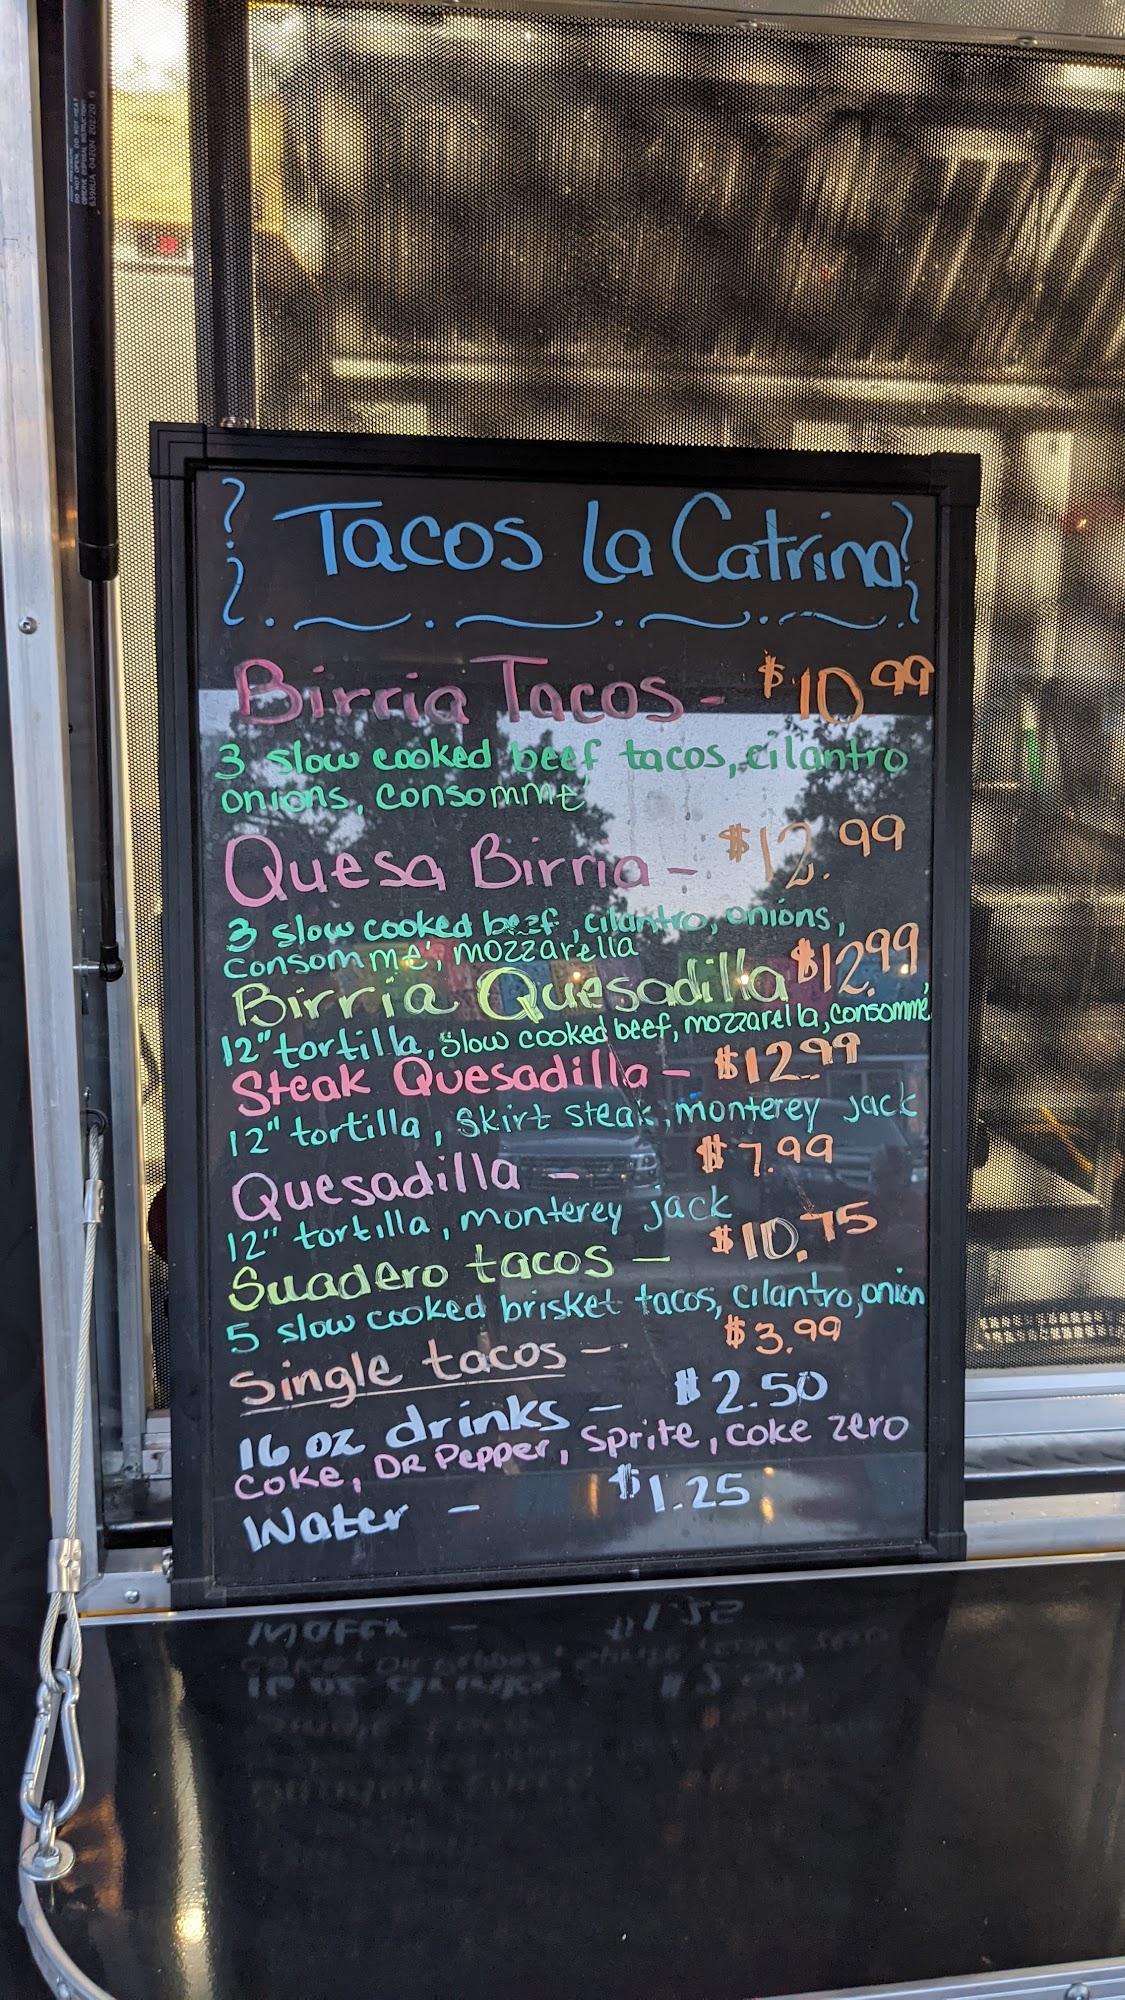 Tacos La Catrina
Birria Tacos - $10.99
3 slow cooked beef tacos, cilantro
onions, consommé
Quesa Birria - $12.99
3 slow cooked beef, cilantro, onions,
consommé, mozzarella
Birria Quesadilla $12.99
12" tortilla, slow cooked beef, mozzarella, consommé
Steak Quesadilla - $12.99
12" tortilla, skirt steak, monterey jack
Quesadilla - $7.99
12" tortilla, monterey jack
Suadero tacos - $10.75
5 slow cooked brisket tacos, cilantro, onion
Single tacos - $3.99
16 oz drinks - $2.50
Coke, DR Pepper, Sprite, coke zero
Water - $1.25